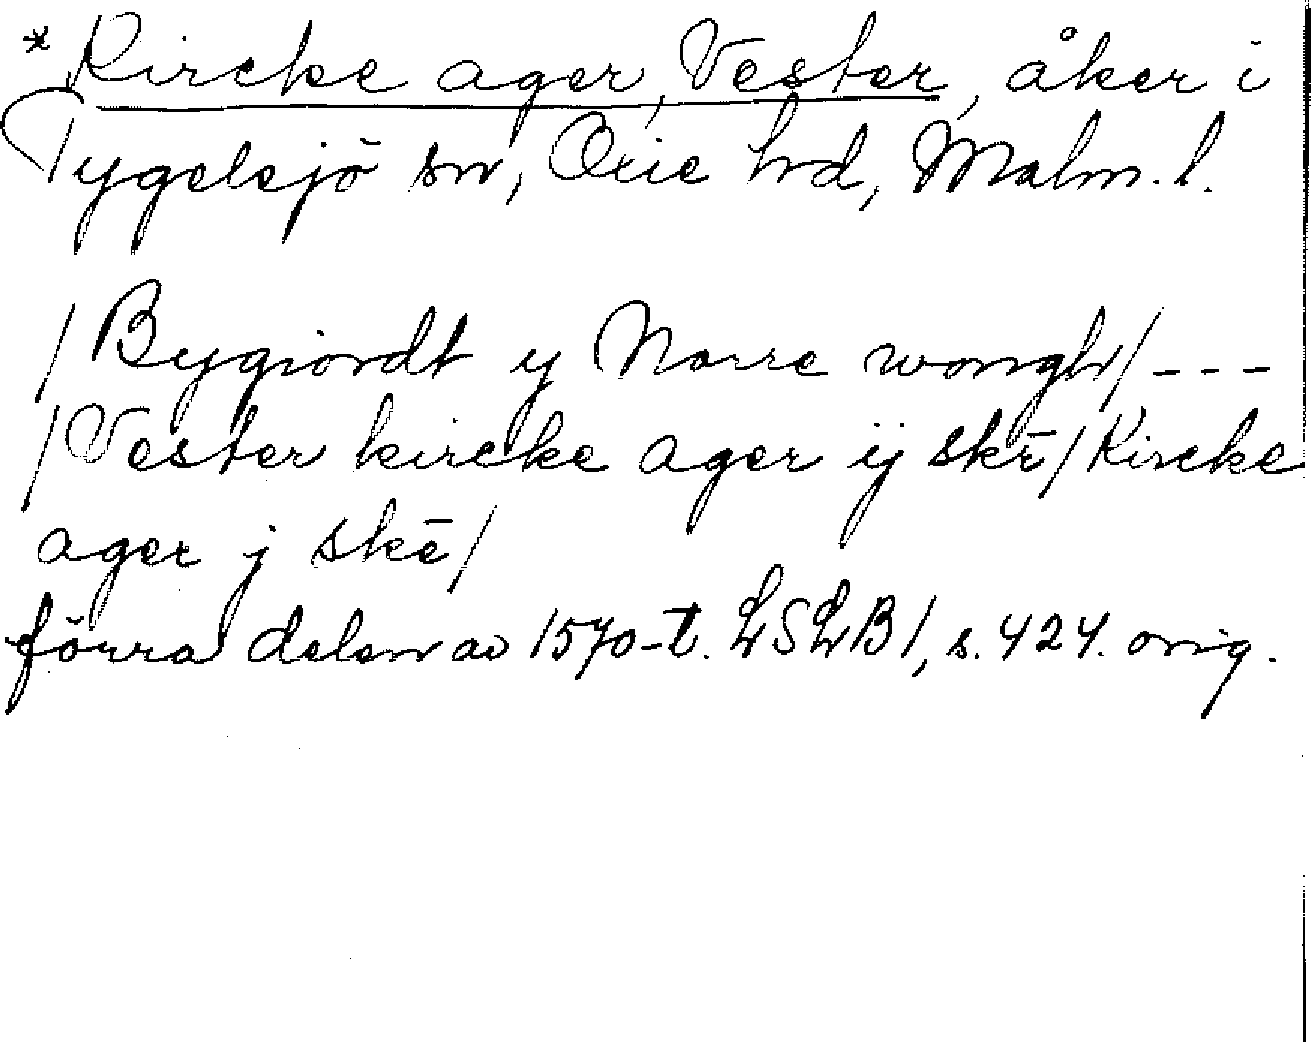 * Kircke ager, Vester, åker i
Tygelsjö sn, Oxie hd, Malm. l.
/Bygiordt y Norre wongh/---
/Vester kircke ager ij skē/Kircke
ager j skē/
förra delen av 1570-t. LSLB1, s. 424. orig.